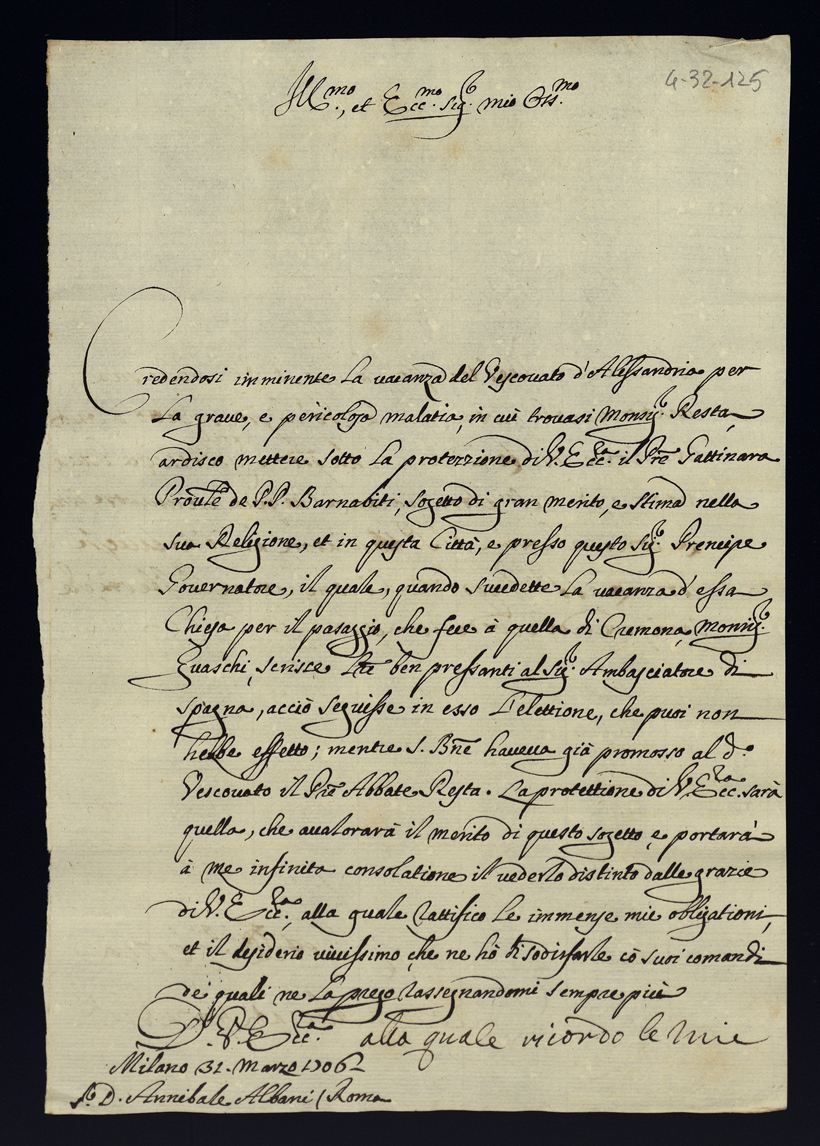 4-32-125
Ill.mo, et Ecc.mo Sig.r mio Oss.mo
Credendosi imminente la vacanza del Vescovato d'Alessandria per
la grave, e pericolosa malatia, in cui trovasi Monsig.r Resta,
ardisco mettere sotto la protezzione di V. Ecc.za il Pre Gattinara
Proule de P.P. Barnabiti, sogetto di gran merito, e stima nella
sua Religione, et in questa Città, e presso questo Sig.r Prencipe
Governatore, il quale, quando succedette la vacanza d'essa
Chiesa per il pasaggio, che fece à quella di Cremona Monsig.r
Guaschi, scrisce Lre ben pressanti al Sig.r Ambasciatore di
Spagna, acciò seguisse in esso l'elettione, che puoi non
hebbe effetto; mentre S. Bne haveva già promosso al d.o
Vescovato il Pre Abbate Resta. La protettione di V. Ecc.za sarà
quella, che avalorarà il merito di questo sogetto, e portarà
à me infinita consolatione il vederlo distinto dalle grazie
di V. Ecc.za, alla quale rattifico le immense mie obligationi,
et il desiderio vivissimo che ne hò di sodisfarle cõ suoi comandi
de quali ne la prego rassegnandomi sempre più
D. V. Ecc.za alla quale ricordo le mie
Milano 31. Marzo 1706
S.r D. Annibale Albani / Roma